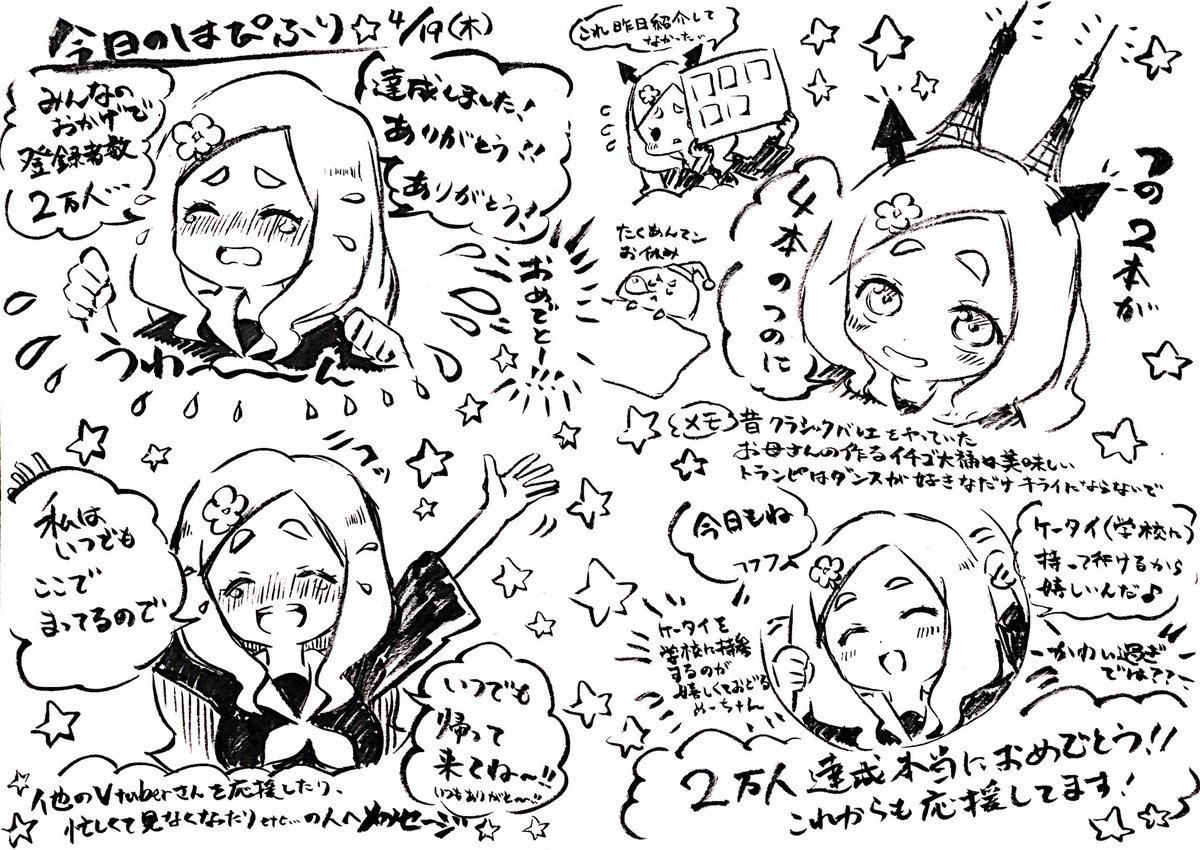 今日のはぴふり☆4/19(木)
みんなの
おかげで
登録者数
2万人
達成しました!
ありがとう!!
ありがとう!
うわ〜〜ん
おめでとー!!!
これ昨日紹介して
なかった
たくあんてン
お休み
つの2本が
4本のつのに
メモ 昔クラシックバレエをやっていた
お母さんの作るイチゴ大福は美味しい
トランピはダンスが好きなだけ キライにならないで
私は
いつでも
ここで
まってるので
いつでも
帰って
来てね〜!!
いつもありがと〜!!
他のVtuberさんを応援したり、
忙しくて見なくなったりetc...の人へメッセージ
今日もね
フフフ♪
ケータイ(学校に)
持って行けるから
嬉しいんだ♪
ケータイを
学校に持参
するのが
嬉しくておどる
めーちゃん
かわい過ぎ
では??
2万人達成本当におめでとう!!
これからも応援してます!